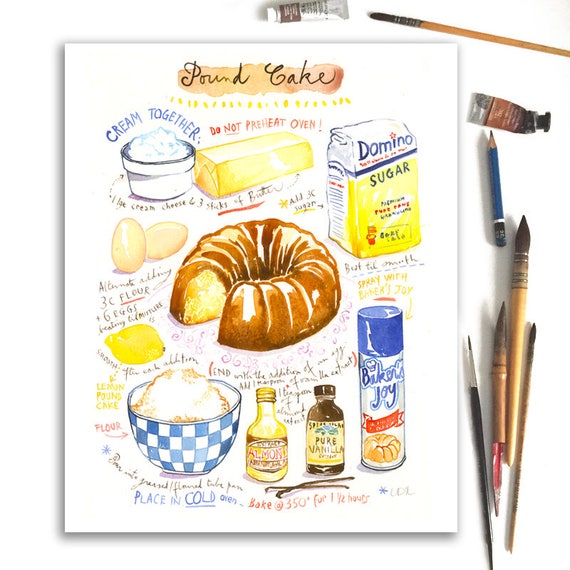 Pound Cake
CREAM TOGETHER:
DO NOT PREHEAT OVEN!
Domino
SUGAR
PREMIUM
PURE CANE
GRANULATED
1 8oz cream cheese & 3 sticks of Butter
* Add 3C
sugar
Beat til smooth
Alternate adding
3C FLOUR
+ 6 EGGS
beating til
SMOOTH after each addition
SPRAY WITH
BAKER'S JOY
(END with the addition of an egg
Add 1 teaspoon of vanilla extract)
1 teaspoon
of
almond
extract
LEMON
POUND
CAKE
FLOUR
Baker's
Joy
EXTRACT
ALMOND
PURE
VANILLA
* Pour into greased/floured tube pan
PLACE IN COLD oven - Bake @ 350° for 1 1/2 hours